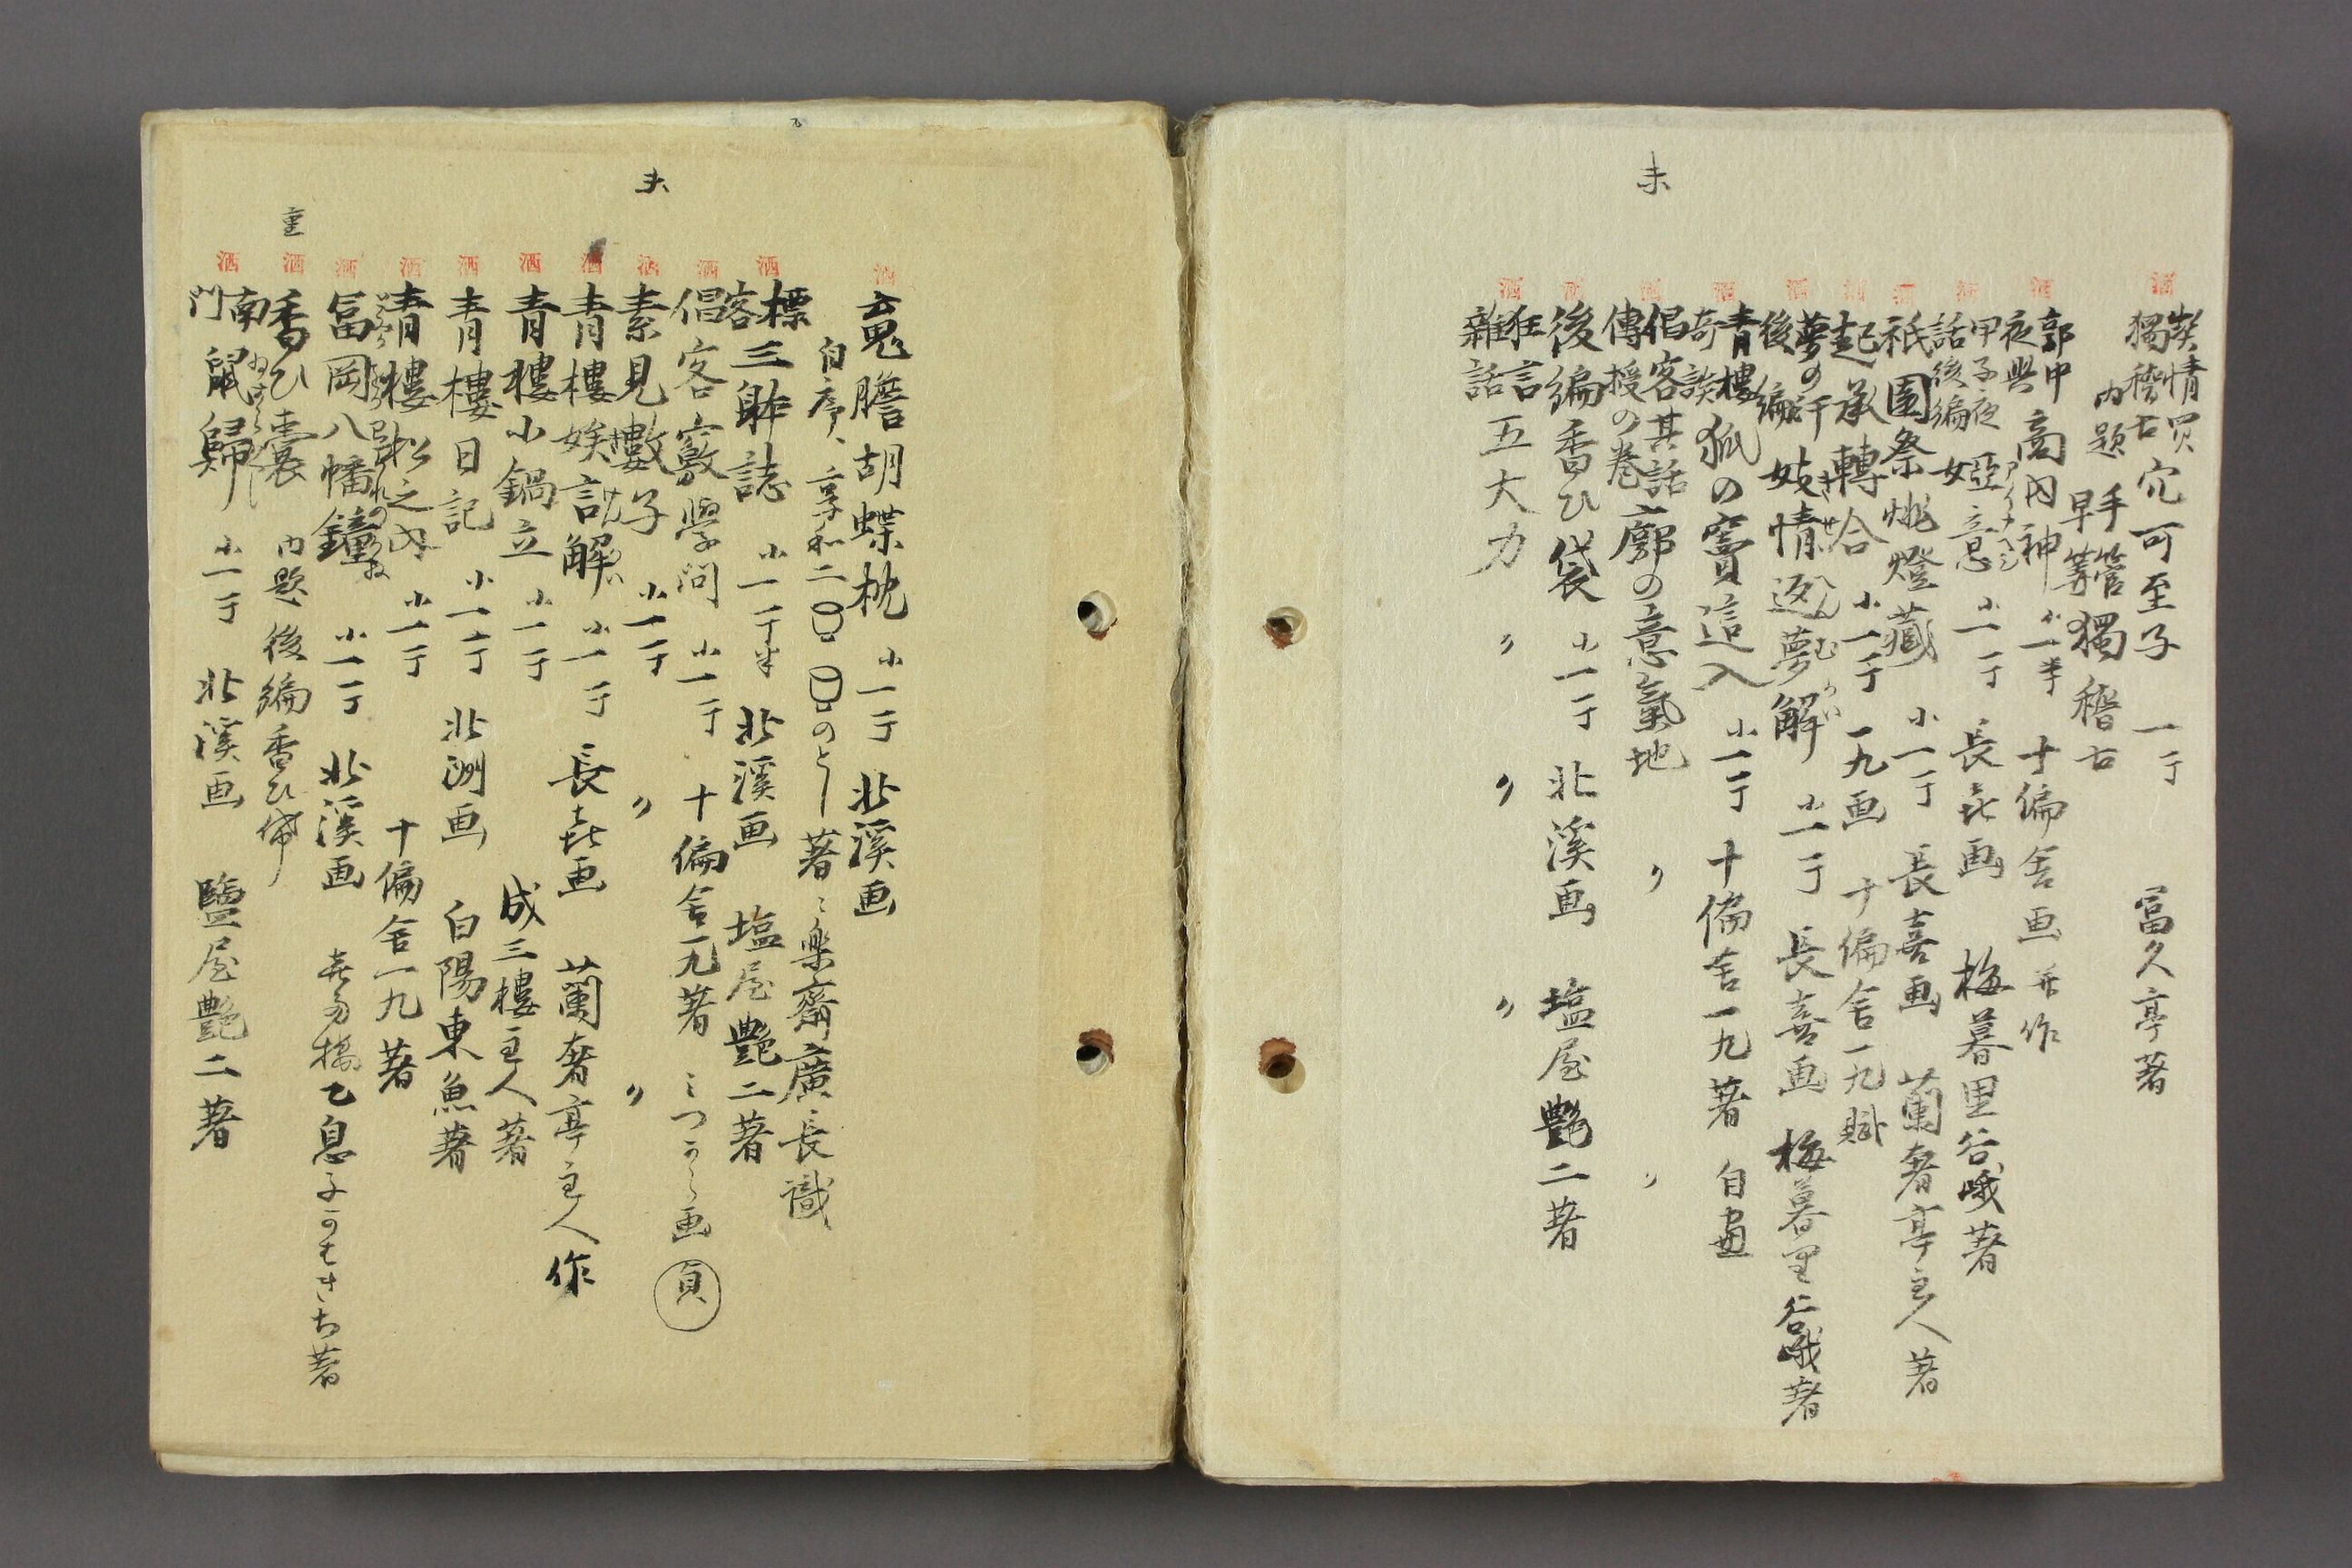 未
洒
契情買
獨稽古 穴可至子 一丁 富久亭著
内題 手管
早算 獨稽古
洒
郭中
夜興 商内神 小一半 十偏舎画并作
洒
甲子夜
話後編 女亞意 小一丁 長㐂画 梅暮里谷峨著
洒
祇園祭桃燈藏 小一丁 長喜画 蘭奢亭主人著
洒
起承轉合 小一丁 一九画 十偏舎一九賦
洒
夢の汗
後編 妓情返夢解 小一丁 長喜画 梅暮里谷峨著
洒
青樓
奇談 狐の竇這入 小一丁 十偏舎一九著 自畫
洒
倡客其話
傳授の巻 廓の意氣地 〃 〃
洒
後編香ひ袋 小一丁 北溪画 塩屋艶二著
洒
狂言
雜話 五大力 〃 〃 〃
未
洒
䰟膽胡蝶枕 小一丁 北溪画
自序、享和二のとし著、楽齋廣長識
洒
標
客三躰誌 小一丁半 北溪画 塩屋艶二著
洒
倡客竅學問 小一丁 十偏舎一九著 画 貞
洒
素見數子 小一丁 〃 〃
洒
青樓娭言解 小一丁 長㐂画 蘭奢亭主人作
洒
青樓小鍋立 小一丁 成三樓主人著
洒
青樓日記 小一丁 北洲画 白陽東魚著
洒
青樓松之内 小一丁 十偏舎一九著
洒
冨岡八幡鐘 小一丁 北溪画 息子
重
洒
香ひ嚢 内題 後編香ひ袋
洒
南
門 鼠歸 小一丁 北溪画 鹽屋艶二著